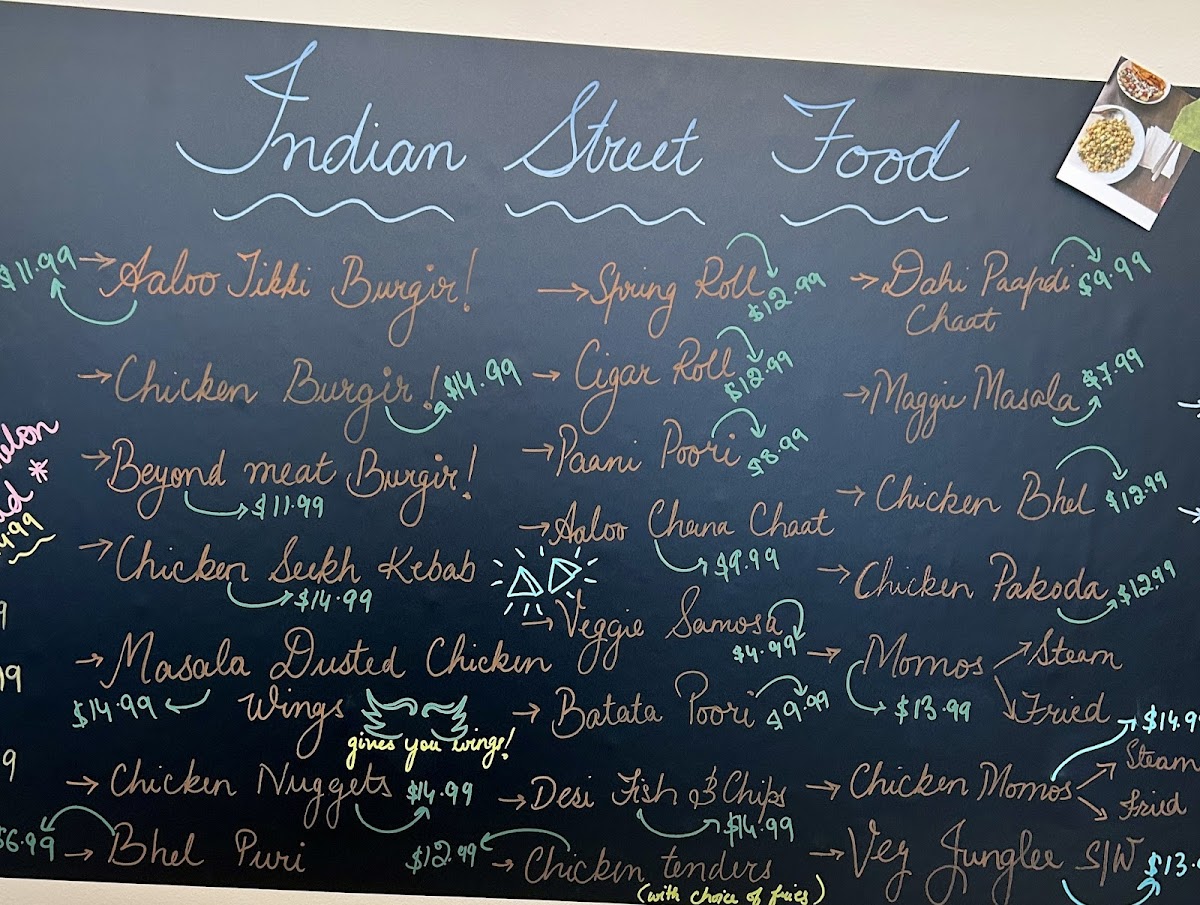 Indian Street Food
$11.99 → Aaloo Tikki Burgir!
→ Chicken Burgir! $14.99
→ Beyond meat Burgir!
→ $11.99
→ Chicken Seekh Kebab
→ $14.99
→ Masala Dusted Chicken
$14.99 ← Wings
gives you wings!
→ Chicken Nuggets $14.99
$6.99 → Bhel Puri
→ Spring Roll
$12.99
→ Cigar Roll
$12.99
→ Paani Poori
$8.99
→ Aaloo Chana Chaat
→ $9.99
→ Veggie Samosa
$4.99
→ Batata Poori $9.99
→ Desi Fish & Chips
→ $14.99
$12.99 → Chicken tenders
(with choice of fries)
→ Dahi Paapdi $9.99
Chaat
→ Maggie Masala $7.99
→ Chicken Bhel $12.99
→ Chicken Pakoda $12.99
→ Momos → Steam
→ $13.99 → Fried
→ Chicken Momos → Steam
→ Fried
→ Veg Junglee S/W